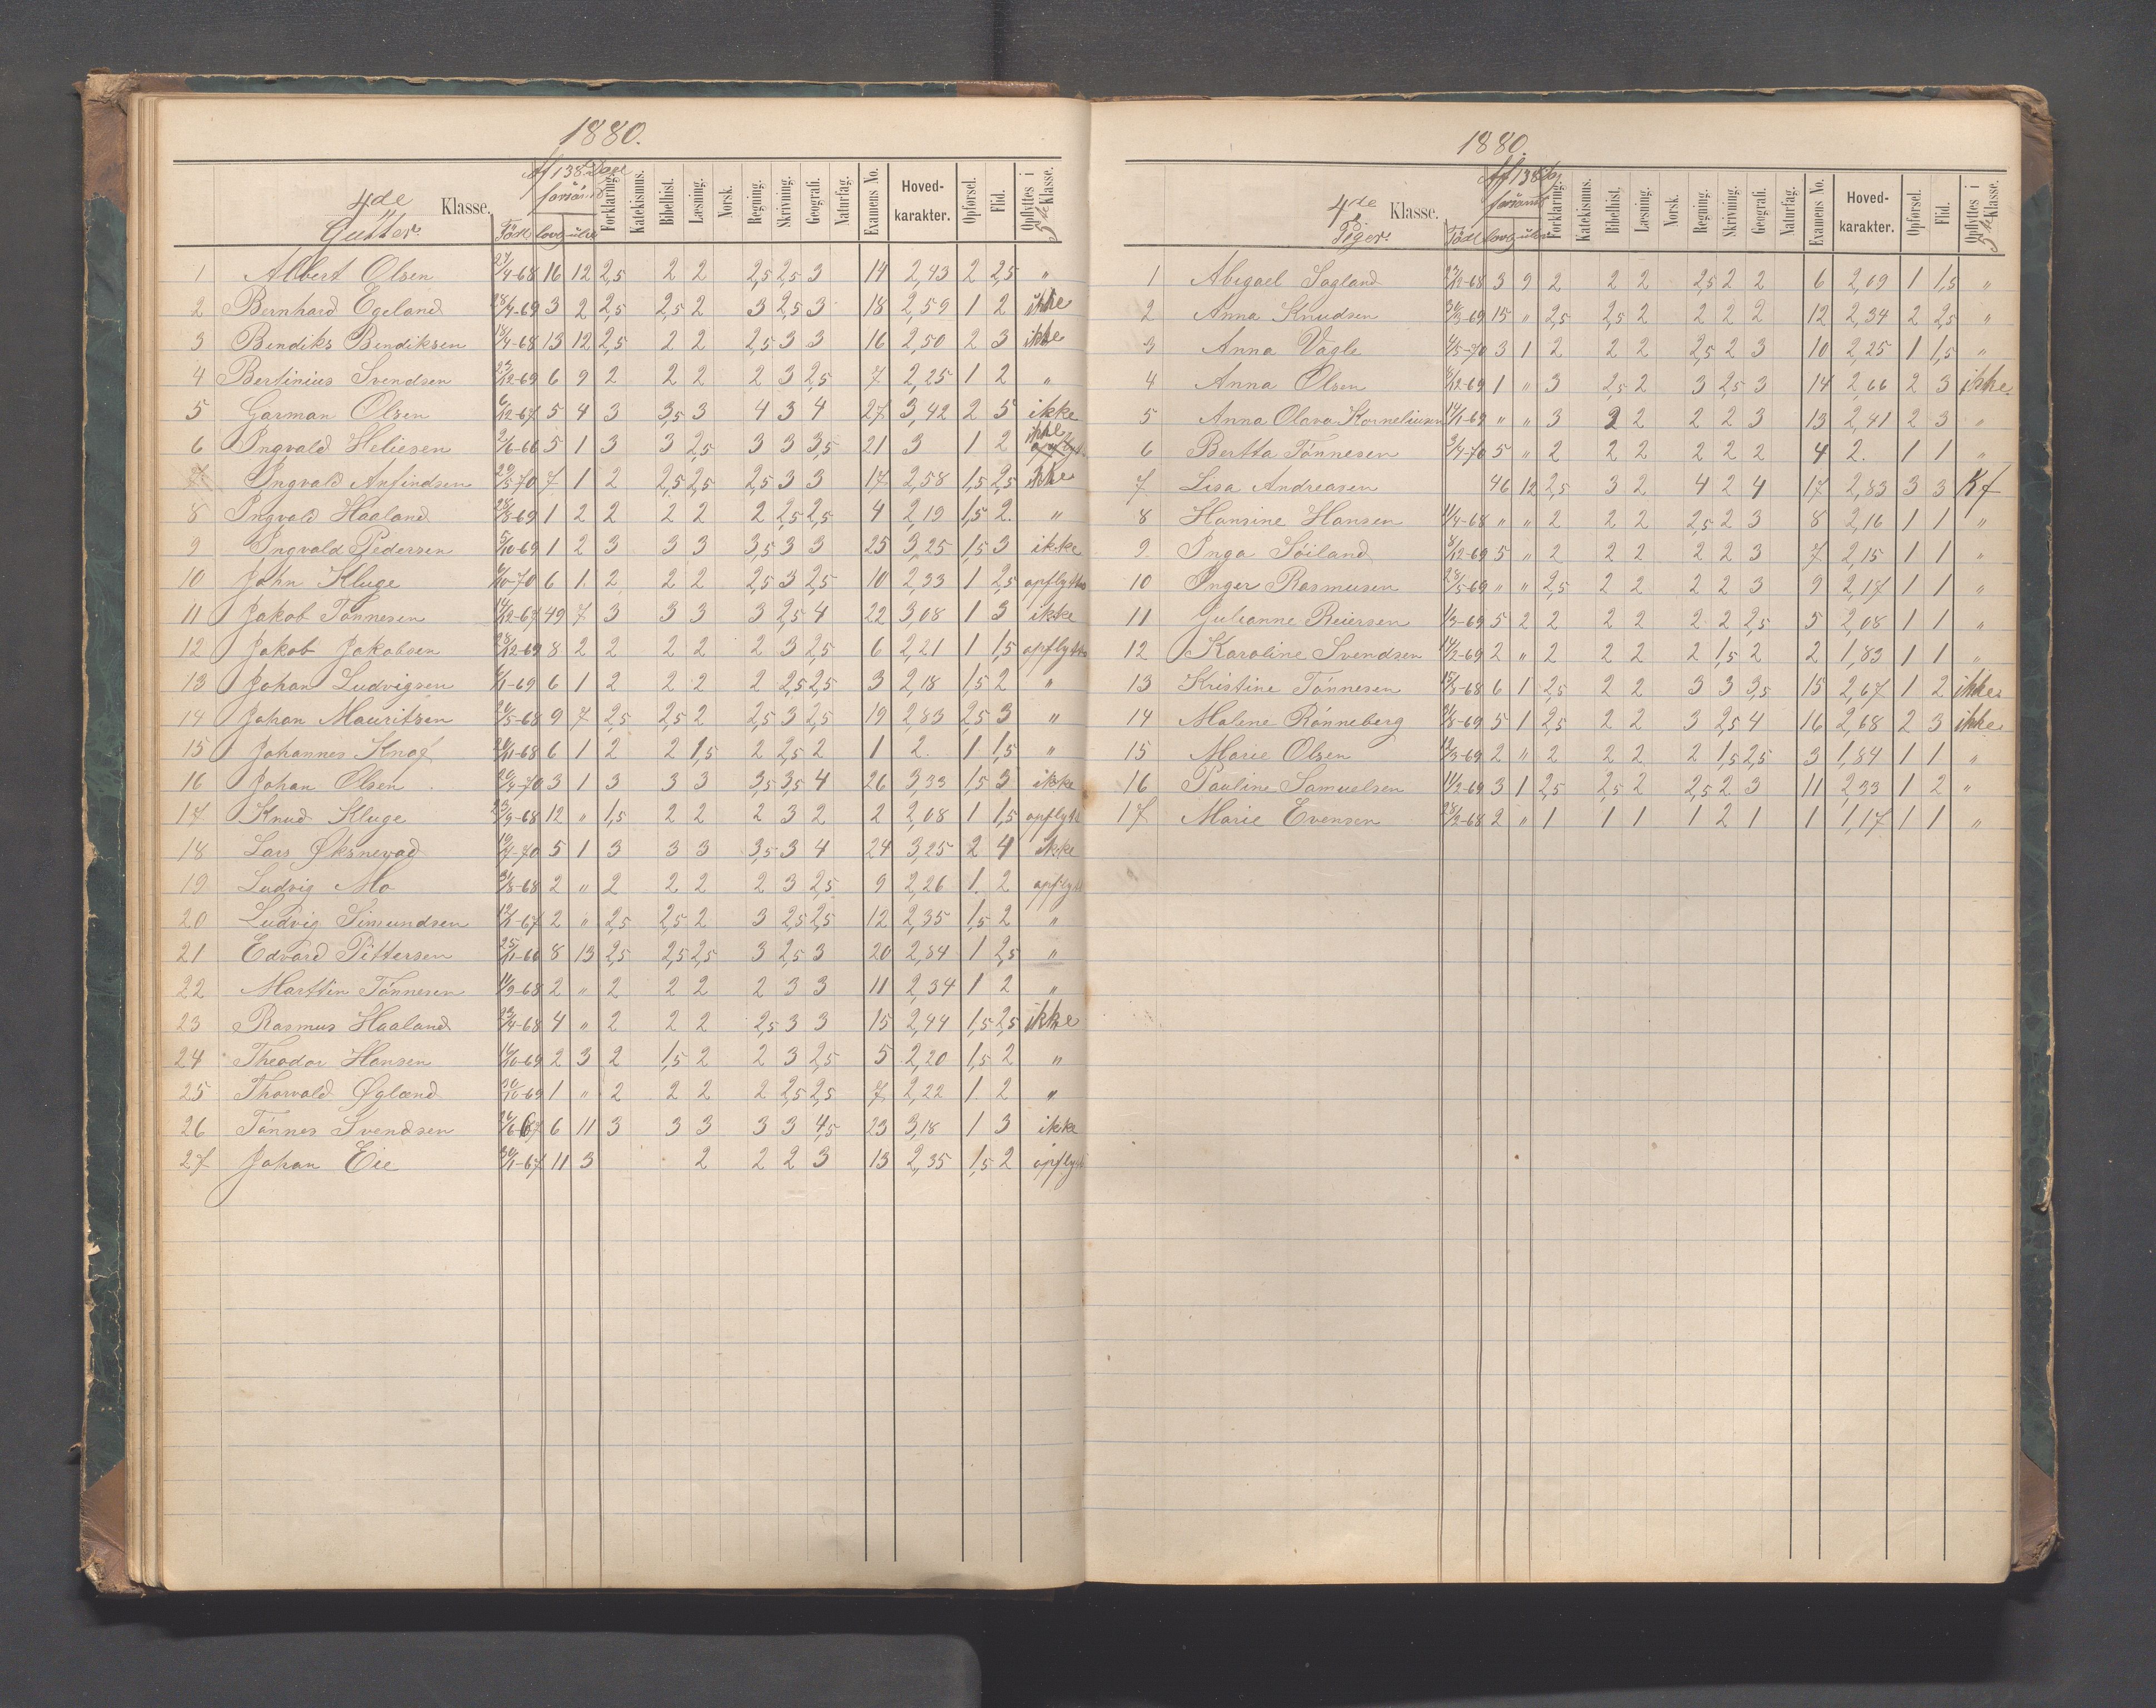 1880.
4de Klasse.
Gutter.
Af 138 Dage
forsömt
Född lovl. ulvl.
Forklaring. Katekismus. Bibelhist. Læsning. Norsk. Regning. Skrivning. Geografi. Naturfag. Examens No. Hoved-karakter. Opførsel. Flid. Opflyttes i 5te Klasse.
1 Albert Olsen 27/4-68 16 12 2,5 2 2 2,5 2,5 3 14 2,43 2 2,5 "
2 Bernhard Egeland 28/4-69 3 2 2,5 2,5 2 3 2,5 3 18 2,59 1 2 ikke
3 Bendiks Bendiksen 18/4-68 13 12 2,5 2 2 2,5 3 3 16 2,50 2 3 ikke
4 Bertinius Svendsen 23/12-69 6 9 2 2 2 2 3 2,5 7 2,25 1 2 "
5 Garman Olsen 6/12-67 5 4 3 3,5 3 4 3 4 27 3,42 2 5 ikke
6 Ingvald Heliesen 2/6-66 5 1 3 3 2,5 3 3 3,5 21 3 1 2 ikke
7 Ingvald Anfindsen 29/5-70 7 1 2 2,5 2,5 2,5 3 3 17 2,58 1,5 2,5 ikke
8 Ingvald Haaland 28/8-69 1 2 2 2 2 2 2,5 2,5 4 2,19 1,5 2. "
9 Ingvald Pedersen 5/10-69 1 2 3 3 3 3,5 3 3 25 3,25 1,5 3 ikke
10 John Kluge 6/10-70 6 1 2 2 2 2,5 3 2,5 10 2,33 1 2,5 opflyttes
11 Jakob Tönnesen 14/12-67 49 7 3 3 3 3 2,5 4 22 3,08 1 3 ikke
12 Jakob Jakobsen 28/12-69 8 2 2 2 2 2 3 2,5 6 2,21 1 1,5 opflyttes
13 Johan Ludvigsen 6/1-69 6 1 2 2 2 2 2,5 2,5 3 2,18 1,5 2 "
14 Johan Mauritsen 26/5-68 9 7 2,5 2,5 2 2,5 3 2,5 19 2,83 2,5 3 "
15 Johannes Knof 26/11-68 6 1 2 2 1,5 2 2,5 2 1 2. 1 1,5 "
16 Johan Olsen 20/4-70 3 1 3 3 3 3,5 3,5 4 26 3,33 1,5 3 ikke
17 Knud Kluge 23/9-68 12 " 1,5 2 2 2 3 2 2 2,08 1 1,5 opflytt
18 Lars Øksnevad 19/7-70 5 1 3 3 3 3,5 3 4 24 3,25 2 4 ikke
19 Ludvig Mo 31/8-68 2 " 2 2 2 2 3 2,5 9 2,26 1. 2 opflytt
20 Ludvig Simundsen 12/1-67 2 " 2,5 2,5 2 3 2,5 2,5 12 2,35 1,5 2 "
21 Edvard Pittersen 25/11-66 8 13 2,5 2,5 2,5 3 2,5 3 20 2,84 1 2,5 "
22 Marttin Tönnesen 11/9-68 2 " 2 2 2 2 3 3 11 2,34 1 2 "
23 Rasmus Haaland 23/4-68 4 " 2 2 2 2,5 3 3 15 2,44 1,5 2,5 ikke
24 Theodor Hansen 16/10-69 2 3 2 1,5 2 2 3 2,5 5 2,20 1,5 2 "
25 Thorvald Øglænd 30/10-69 1 " 2 2 2 2 2,5 2,5 7 2,22 1 2 "
26 Tönnes Svendsen 26/6 67 6 11 3 3 3 3 3 4,5 23 3,18 1 3 ikke
27 Johan Eie 30/1-67 11 3 2 2 2 3 13 2,35 1,5 2 opflytt
1880.
4de Klasse.
Piger.
Af 138 Dg
forsömt
Född lovl. ulvl.
Forklaring. Katekismus. Bibelhist. Læsning. Norsk. Regning. Skrivning. Geografi. Naturfag. Examens No. Hoved-karakter. Opførsel. Flid. Opflyttes i 5te Klasse.
1 Abigael Sagland 27/12-68 3 9 2 2 2 2,5 2 2 6 2,09 1 1,5 "
2 Anna Knudsen 30/3-69 15 " 2,5 2,5 2 2 2 2 12 2,34 2 2,5 "
3 Anna Vagle 4/5-70 3 1 2 2 2 2,5 2 3 10 2,25 1 1,5 "
4 Anna Olsen 8/12-69 1 " 3 2,5 2 3 2,5 3 14 2,66 2 3 ikke.
5 Anna Olava Korneliusen 14/1-69 " " 3 2 2 2 2 3 13 2,41 2 3 "
6 Bertta Tönnesen 3/4-70 5 " 2 2 2 2 2 2 4 2. 1 1 "
7 Lisa Andreasen 46 12 2,5 3 2 4 2 4 17 2,83 3 3 Kf
8 Hansine Hansen 11/4-68 " " 2 2 2 2,5 2 3 8 2,16 1 1 "
9 Inga Söiland 8/12-69 5 " 2 2 2 2 2 3 7 2,15 1 1 "
10 Inger Rasmusen 28/5-69 " " 2,5 2 2 2 2 3 9 2,17 1 1 "
11 Julianne Reiersen 1/3-69 5 2 2 2 2 2 2 2,5 5 2,08 1 1 "
12 Karoline Svendsen 14/2-69 2 " 2 2 2 2 1,5 2 2 1,83 1 1 "
13 Kristine Tönnesen 15/8-68 6 1 2,5 2 2 3 3 3,5 15 2,67 1 2 ikke
14 Malene Rönneberg 31/8-69 5 1 2,5 2 2 3 2,5 4 16 2,68 2 3 ikke
15 Marie Olsen 12/3-69 2 " 2 2 2 2 1,5 2,5 3 1,84 1 1 "
16 Pauline Samuelsen 11/2-69 3 1 2,5 2,5 2 2,5 2 3 11 2,33 1 2 "
17 Marie Evensen 28/2-68 2 " 1 1 1 1 2 1 1 1,17 1 1 "